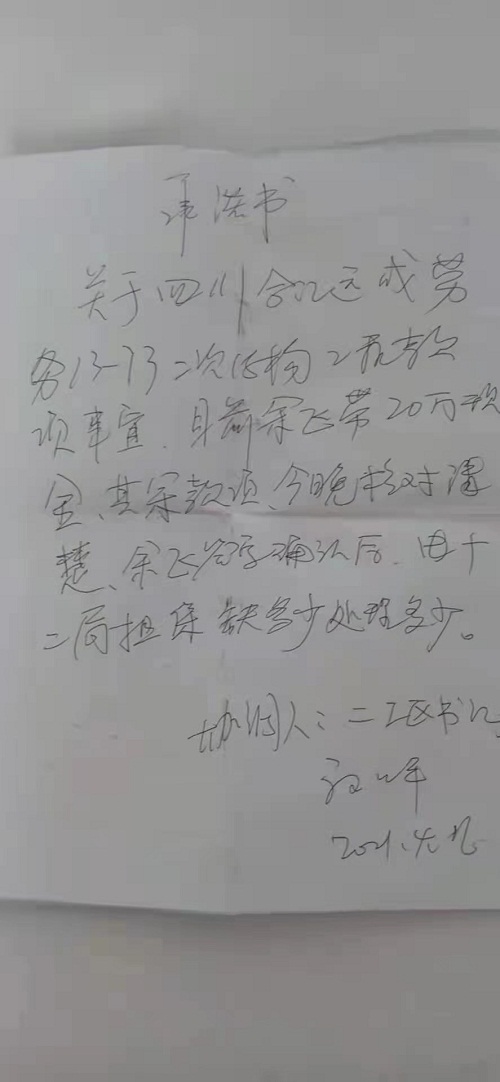 承诺书
关于四川合亿运成劳
务13-73二次结构工程款
项事宜,目前余飞带20万现
金、其余款项、今晚核对清
楚、余飞签字确认后.由十
二局担保缺多少处理多少。
协调人:二工区书记
2021.